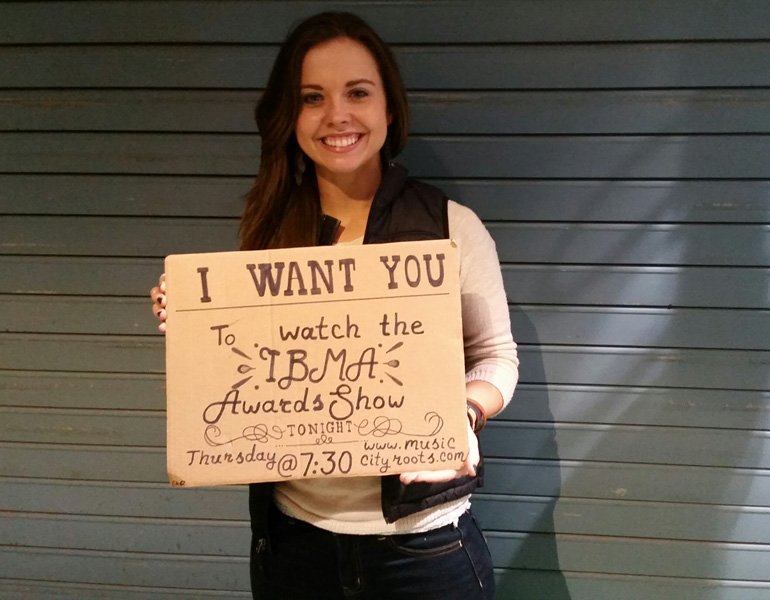 I WANT YOU
To watch the
IBMA
Awards Show
TONIGHT
Thursday @ 7:30 www.music
cityroots.com